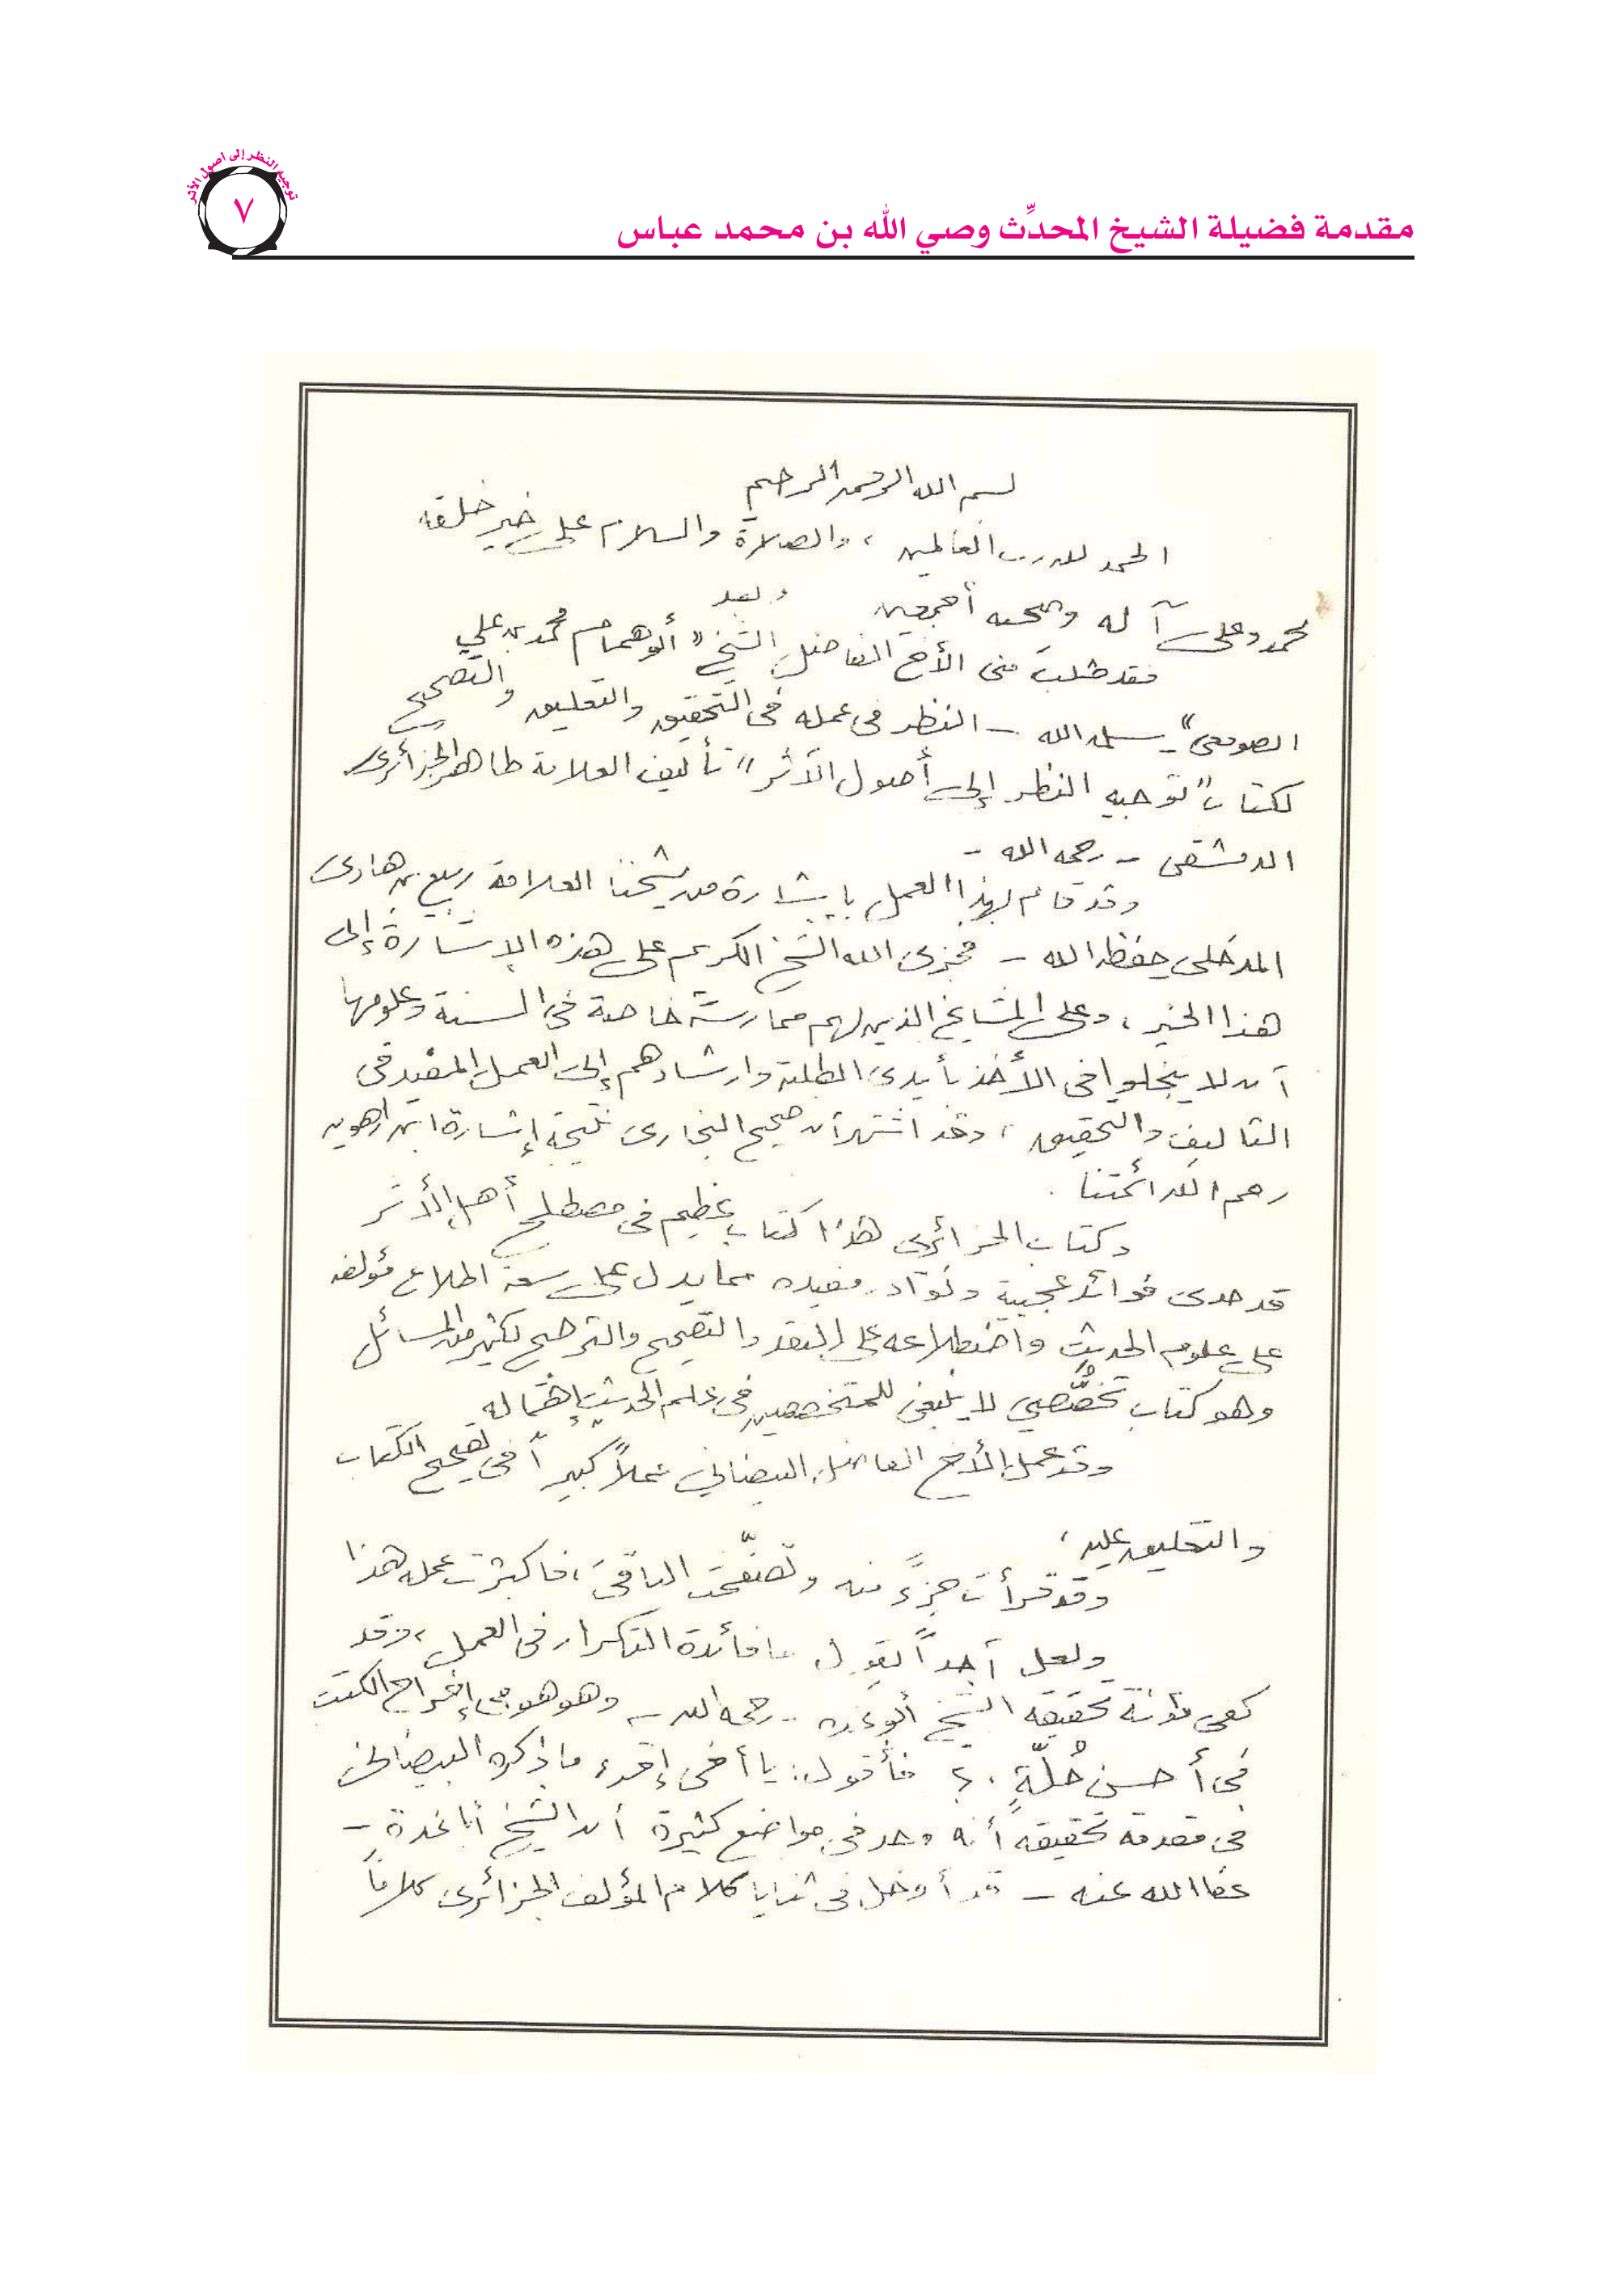 توجيه النظر إلى أصول الأثر
٧
مقدمة فضيلة الشيخ المحدِّث وصي الله بن محمد عباس
بسم الله الرحمن الرحيم
الحمد لله رب العالمين، والصلاة والسلام على خير خلقه
محمد وعلى آله وصحبه أجمعين وبعد
فقد طلب مني الأخ الفاضل الشيخ "أبو همام محمد بن علي
الصومعي" - سلمه الله - النظر في عمله في التحقيق والتعليق والتصحيح
لكتاب "توجيه النظر إلى أصول الأثر" تأليف العلامة طاهر الجزائري
الدمشقي - رحمه الله -
وقد قام بهذا العمل بإشارة من شيخنا العلامة ربيع بن هادي
المدخلي حفظه الله - فجزى الله الشيخ الكريم على هذه الإشارة إلى
هذا الخير، وعلى المشايخ الذين لهم ممارسة خاصة في السنة وعلومها
أن لا يبخلوا في الأخذ بأيدي الطلبة وإرشادهم إلى العمل المفيد في
التاليف والتحقيق، وقد اشتهر أن صحيح البخاري نتيجة إشارة ابن راهويه
رحم الله أئمتنا.
وكتاب الجزائري هذا كتاب عظيم في مصطلح أهل الأثر
قد حوى فوائد عجيبة ونوادر مفيدة مما يدل على سعة اطلاع مؤلفه
على علوم الحديث واضطلاعه على النقد والتصحيح والترجيح لكثير من المسائل
وهو كتاب تخصُّصي لا ينبغي للمتخصصين في علم الحديث إهماله
وقد عمل الأخ الفاضل البيضاني عملاً كبيراً في تصحيح الكتاب
والتعليق عليه،
وقد قرأت جزءً منه وتصفّحت الباقيَ، فأكبرت عمله هذا
ولعل أحداً يقول ما فائدة التكرار في العمل، وقد
كفى مؤنة تحقيقه الشيخ أبو غدة - رحمه الله - وهو هو في إخراج الكتب
في أحسن حُلّةٍ.؟ فأقول: يا أخي إقرء ما ذكره البيضاني
في مقدمة تحقيقه أنه وجد في مواضع كثيرة أن الشيخ أبا غدة -
عفا الله عنه - قد أدخل في ثنايا كلام المؤلف الجزائري كلاماً